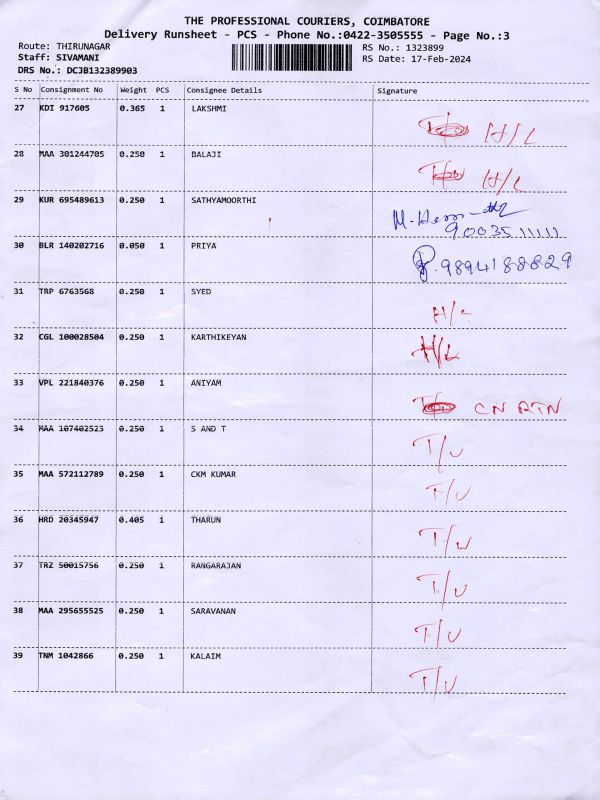 THE PROFESSIONAL COURIERS, COIMBATORE
Delivery Runsheet - PCS - Phone No.:0422-3505555 - Page No.:3
Route: THIRUNAGAR RS No.: 1323899
Staff: SIVAMANI RS Date: 17-Feb-2024
DRS No.: DCJB132389903
S No Consignment No Weight PCS Consignee Details Signature
27 KDI 917605 0.365 1 LAKSHMI H/L
28 MAA 301244705 0.250 1 BALAJI H/L
29 KUR 695489613 0.250 1 SATHYAMOORTHI
9003511111
30 BLR 140202716 0.050 1 PRIYA 9894188829
31 TRP 6763568 0.250 1 SYED
32 CGL 100028504 0.250 1 KARTHIKEYAN H/L
33 VPL 221840376 0.250 1 ANIYAM CN RTN
34 MAA 107402523 0.250 1 S AND T T/U
35 MAA 572112789 0.250 1 CKM KUMAR T/U
36 HRD 20345947 0.405 1 THARUN T/U
37 TRZ 50015756 0.250 1 RANGARAJAN T/U
38 MAA 295655525 0.250 1 SARAVANAN T/U
39 TNM 1042866 0.250 1 KALAIM T/U